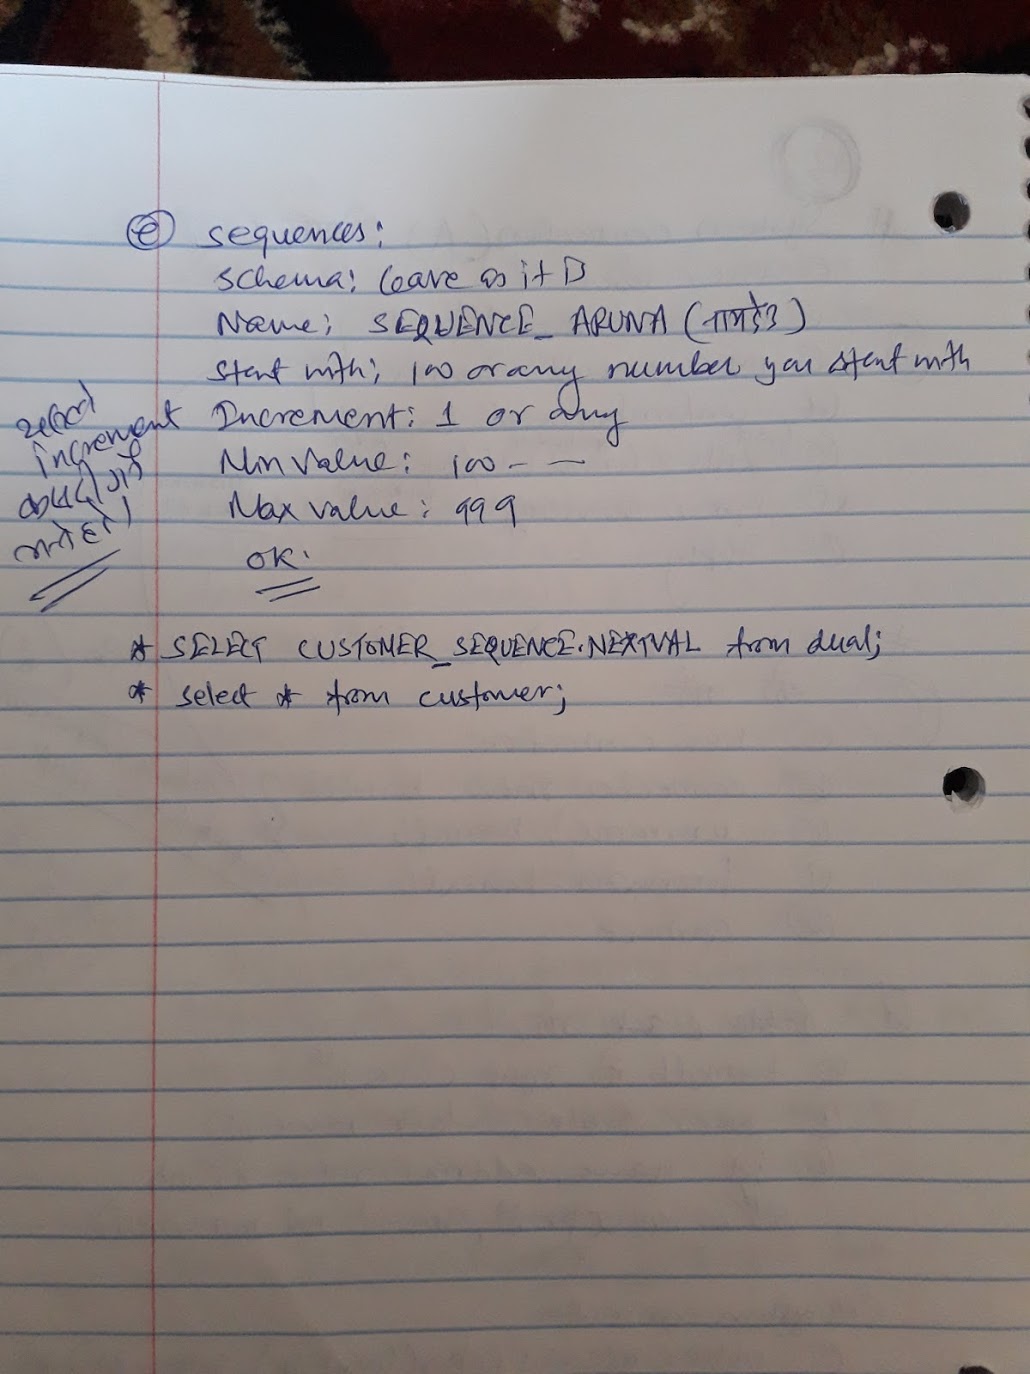 e sequences:
schema: leave as it is
Name: SEQUENCE_ARUNA (
Start with: 100 or any number you start with
increment
Increment: 1 or any
Min value: 100 - —
Max value: 999
OK.
* SELECT CUSTOMER_SEQUENCE.NEXTVAL from dual;
* select * from customer;